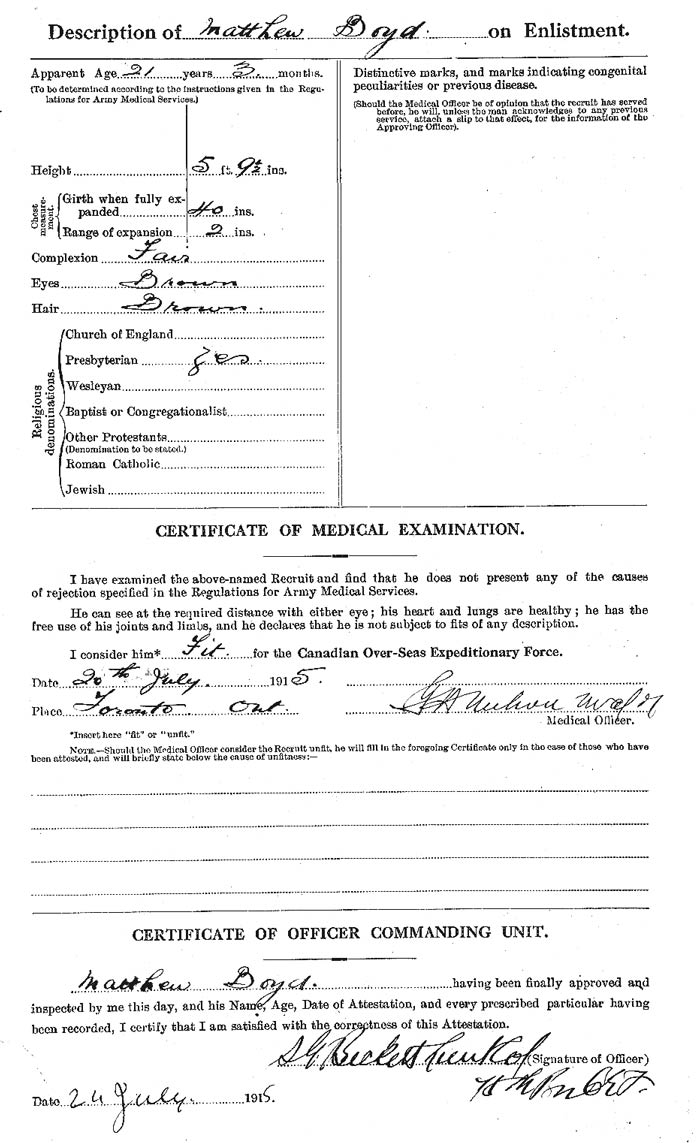 Description of Matthew Boyd. on Enlistment.
Apparent Age 21 years 3. months.
(To be determined according to the instructions given in the Regu-
lations for Army Medical Services.)
Height 5 ft. 9½ ins.
Chest measure-ment.
Girth when fully ex-
panded 40 ins.
Range of expansion 2 ins.
Complexion Fair
Eyes Brown
Hair Brown.
Religious denominations.
Church of England
Presbyterian Yes.
Wesleyan
Baptist or Congregationalist
Other Protestants
(Denomination to be stated.)
Roman Catholic
Jewish
Distinctive marks, and marks indicating congenital
peculiarities or previous disease.
(Should the Medical Officer be of opinion that the recruit has served
before, he will, unless the man acknowledges to any previous
service, attach a slip to that effect, for the information of the
Approving Officer).
CERTIFICATE OF MEDICAL EXAMINATION.
I have examined the above-named Recruit and find that he does not present any of the causes
of rejection specified in the Regulations for Army Medical Services.
He can see at the required distance with either eye; his heart and lungs are healthy; he has the
free use of his joints and limbs, and he declares that he is not subject to fits of any description.
I consider him* Fit. for the Canadian Over-Seas Expeditionary Force.
Date 20th July. 1915.
Place Toronto Ont.
Medical Officer.
*Insert here "fit" or "unfit."
NOTE.—Should the Medical Officer consider the Recruit unfit, he will fill in the foregoing Certificate only in the case of those who have
been attested, and will briefly state below the cause of unfitness:—
CERTIFICATE OF OFFICER COMMANDING UNIT.
Matthew Boyd. having been finally approved and
inspected by me this day, and his Name, Age, Date of Attestation, and every prescribed particular having
been recorded, I certify that I am satisfied with the correctness of this Attestation.
S G Beckett (Signature of Officer)
Date 24 July. 1915.